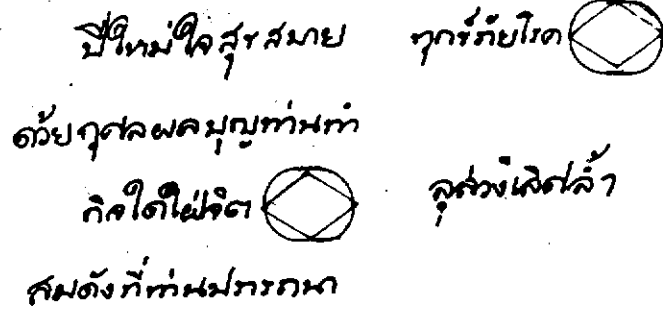 ปีใหม่ใจสุขสบาย ทุกข์ภัยโรค
ด้วยกุศลผลบุญท่านทำ
กิจใดใฝ่จิต ลุล่วงเลิศล้ำ
สมดังที่ท่านปรารถนา